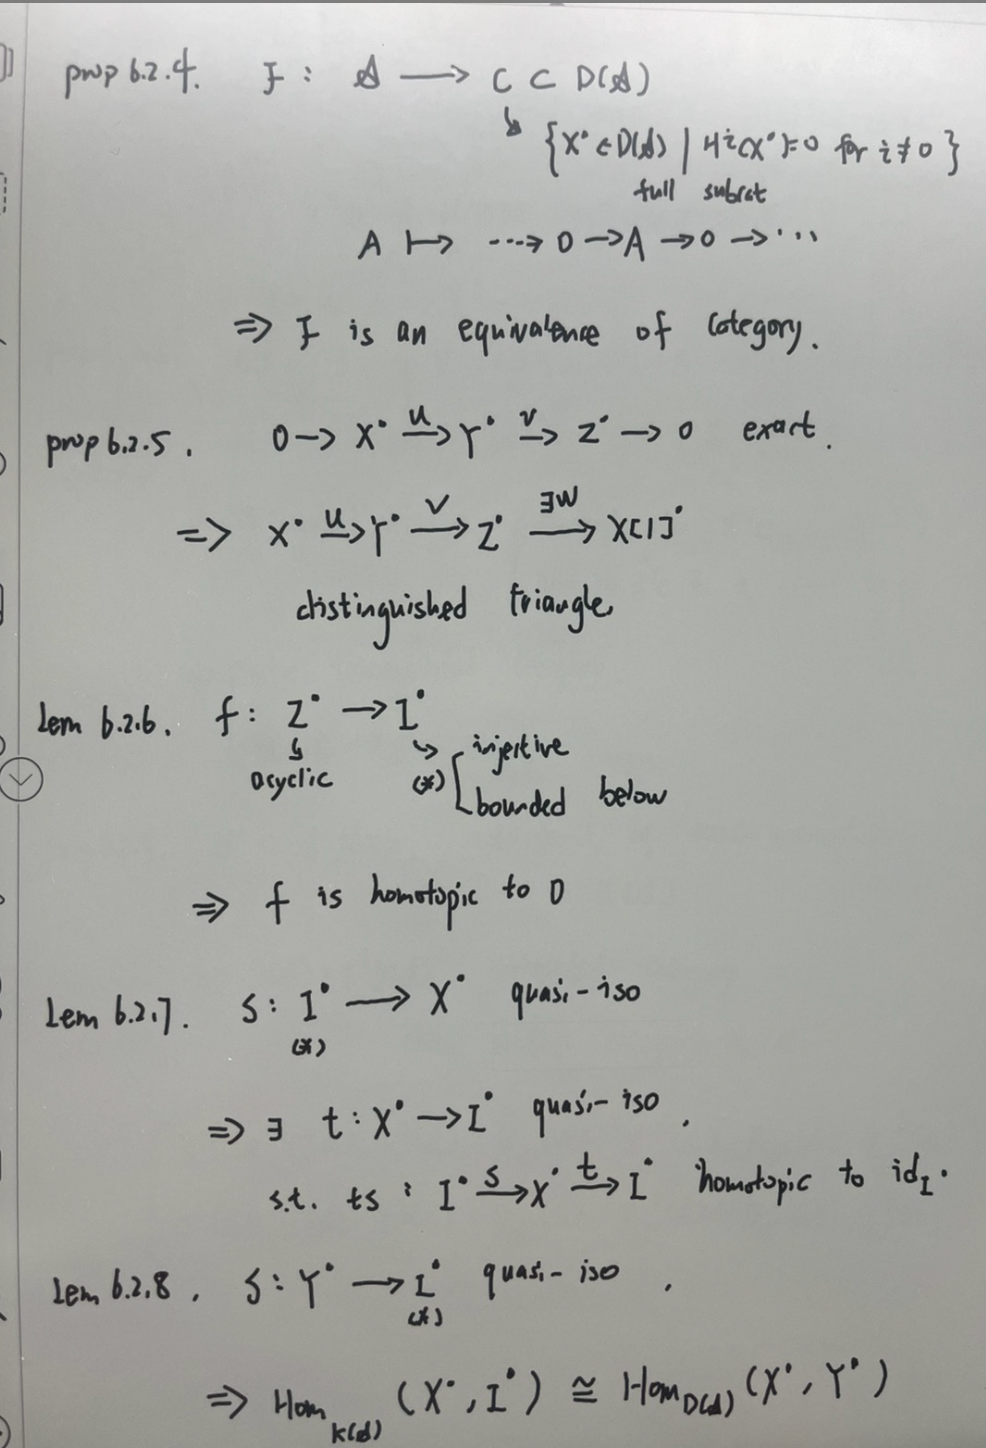 prop 6.2.4. F : 𝒜 → C ⊂ D(𝒜)
↳ {X• ∈ D(𝒜) | Hⁱ(X•)=0 for i≠0}
full subcat
A ↦ ⋯→ 0 → A → 0 → ⋯
⇒ F is an equivalence of category.
prop 6.2.5. 0 → X• –u→ Y• –v→ Z• → 0 exact.
⇒ X• –u→ Y• –v→ Z• –∃w→ X[1]•
distinguished triangle
Lem 6.2.6. f : Z• → I•
acyclic (*) [ injective
bounded below
⇒ f is homotopic to 0
Lem 6.2.7. s : I• → X• quasi-iso
(*)
⇒ ∃ t : X• → I• quasi-iso.
s.t. ts : I• –s→ X• –t→ I• homotopic to id_I•
Lem 6.2.8. s : Y• → I• quasi-iso.
(*)
⇒ Hom_K(𝒜) (X•, I•) ≅ Hom_D(𝒜) (X•, Y•)